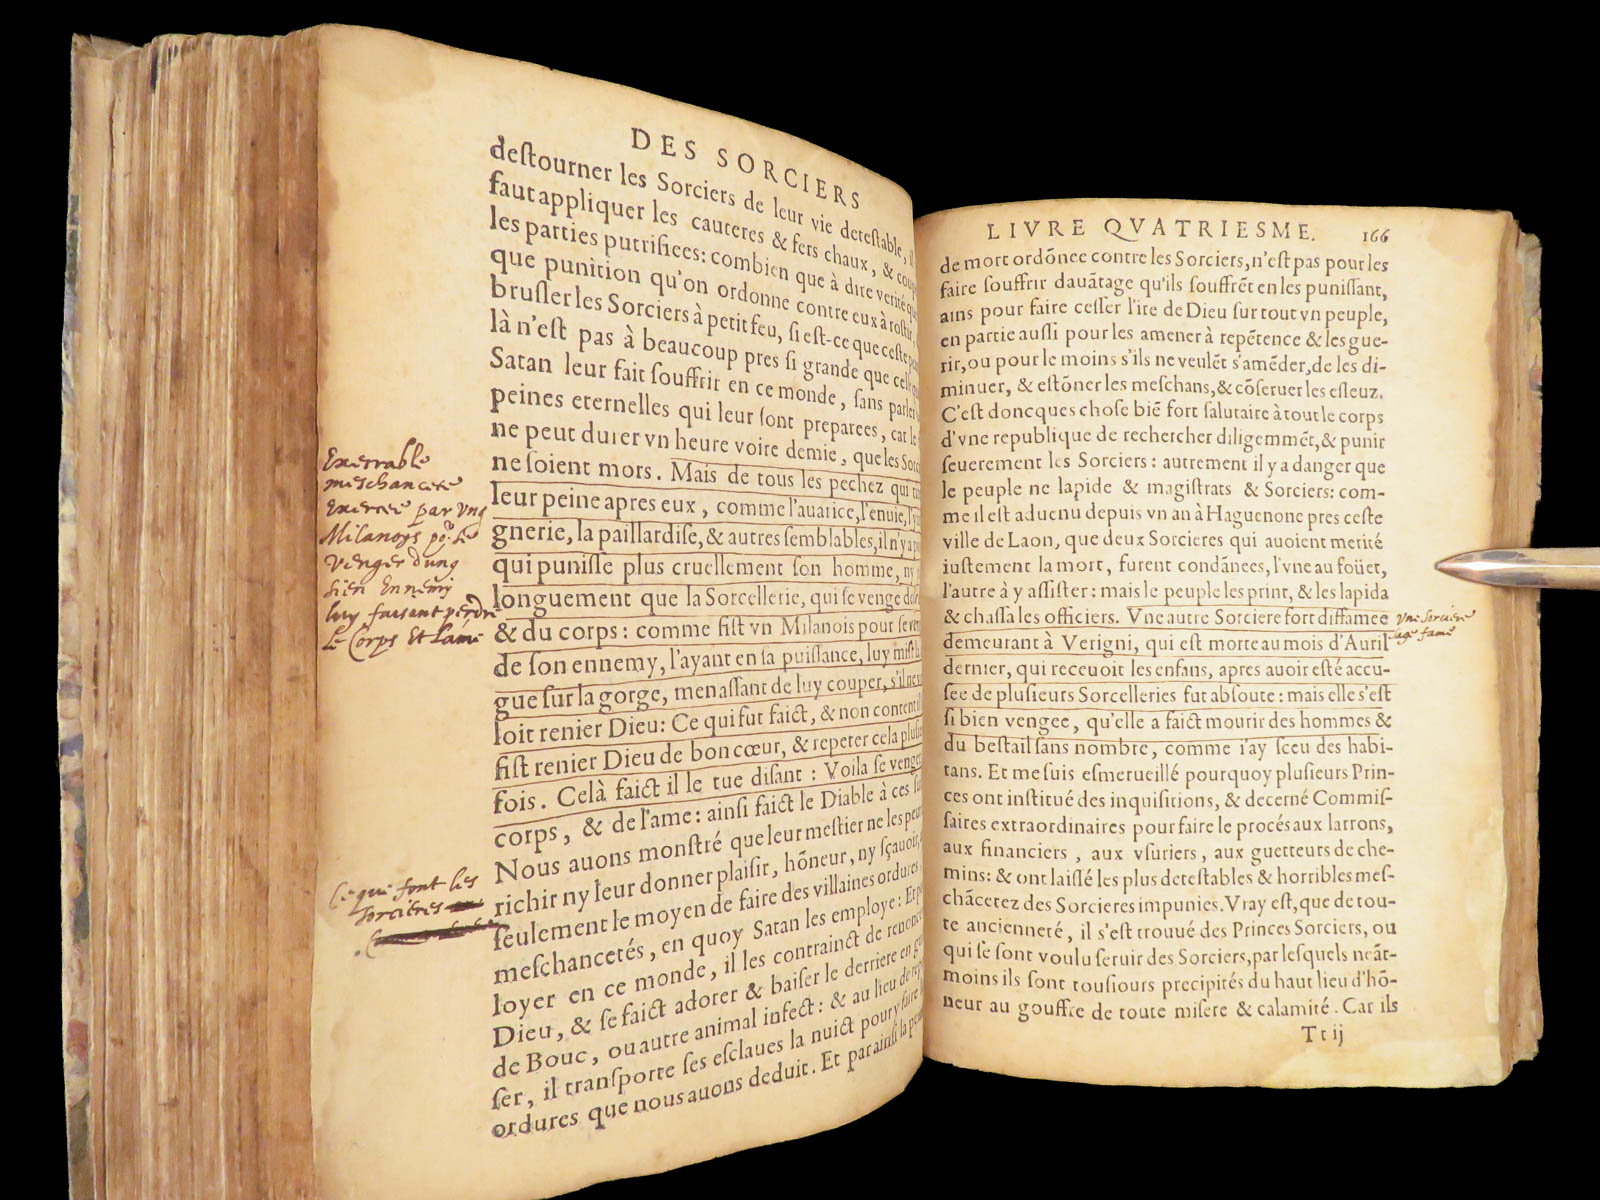 DES SORCIERS
destourner les Sorciers de leur vie detestable, il
faut appliquer les cauteres & fers chaux, & coup
les parties putrifiees: combien que à dire verité que
que punition qu'on ordonne contre eux à rostir,
brusler les Sorciers à petit feu, si est-ce que ceste pe
là n'est pas à beaucoup pres si grande que celle
Satan leur fait souffrir en ce monde, sans parler
peines eternelles qui leur sont preparees, car le
ne peut durer vn heure voire demie, que les Sorc
ne soient mors. Mais de tous les pechez qui
leur peine apres eux, comme l'auarice, l'enuie, l'y
gnerie, la paillardise, & autres semblables, il n'y a
qui punisse plus cruellement son homme, ny
longuement que la Sorcellerie, qui se venge de
& du corps: comme fist vn Milanois pour se ven
de son ennemy, l'ayant en sa puissance, luy mist la
gue sur la gorge, menassant de luy couper, s'il ne v
loit renier Dieu: Ce qui fut faict, & non content il
fist renier Dieu de bon cœur, & repeter cela plusie
fois. Celà faict il le tue disant: Voila se venger
corps, & de l'ame: ainsi faict le Diable à ces
Nous auons monstré que leur mestier ne les peut
richir ny leur donner plaisir, hõneur, ny sçauoir,
seulement le moyen de faire des villaines ordures
meschancetés, en quoy Satan les employe: Et
loyer en ce monde, il les contrainct de renonc
Dieu, & se faict adorer & baiser le derriere en
de Bouc, ou autre animal infect: & au lieu de rep
ser, il transporte ses esclaues la nuict pour y faire
ordures que nous auons deduit. Et par ainsi la pe
Execrable
meschancete
Exercee par vng
Milanoys po. se
venger d'ung
sien Ennemy
luy faisant perdre
le Corps Et L'ame
Ce que font les
sorcieres
LIVRE QVATRIESME. 166
de mort ordõnee contre les Sorciers, n'est pas pour les
faire souffrir dauãtage qu'ils souffrẽt en les punissant,
ains pour faire cesser l'ire de Dieu sur tout vn peuple,
en partie aussi pour les amener à repẽtence & les gue-
rir, ou pour le moins s'ils ne veulẽt s'amẽder, de les di-
minuer, & estõner les meschans, & cõseruer les esleuz.
C'est doncques chose biẽ fort salutaire à tout le corps
d'vne republique de rechercher diligemmẽt, & punir
seuerement les Sorciers: autrement il y a danger que
le peuple ne lapide & magistrats & Sorciers: com-
me il est aduenu depuis vn an à Haguenone pres ceste
ville de Laon, que deux Sorcieres qui auoient merité
iustement la mort, furent condãnees, l'vne au foüet,
l'autre à y assister: mais le peuple les print, & les lapida
& chassa les officiers. Vne autre Sorciere fort diffamee
demeurant à Verigni, qui est morte au mois d'Auril
dernier, qui receuoit les enfans, apres auoir esté accu-
see de plusieurs Sorcelleries fut absoute: mais elle s'est
si bien vengee, qu'elle a faict mourir des hommes &
du bestail sans nombre, comme i'ay sceu des habi-
tans. Et me suis esmerueillé pourquoy plusieurs Prin-
ces ont institué des inquisitions, & decerné Commis-
saires extraordinaires pour faire le procés aux larrons,
aux financiers, aux vsuriers, aux guetteurs de che-
mins: & ont laissé les plus detestables & horribles mes-
chãcetez des Sorcieres impunies. Vray est, que de tou-
te ancienneté, il s'est trouué des Princes Sorciers, ou
qui se sont voulu seruir des Sorciers, par lesquels neãt-
moins ils sont tousiours precipités du haut lieu d'hõ-
neur au gouffre de toute misere & calamité. Car ils
Tt ij
Vne sorciere
sage fame